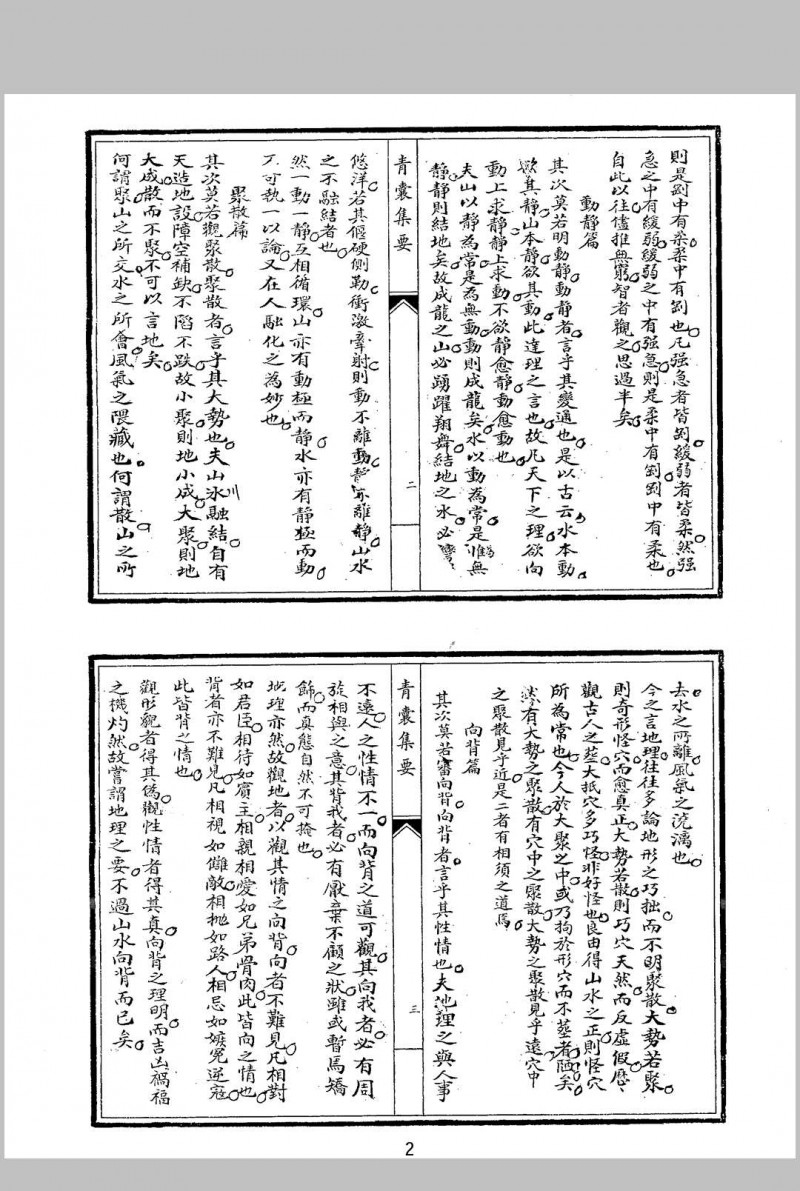 則是剛中有柔柔中有剛也凡强急者皆剛緩弱者皆柔然强
急之中有緩弱緩弱之中有强急則是柔中有剛剛中有柔也
自此以往儘推無窮智者觀之思過半矣
動靜篇
其次莫若明動靜動靜者言乎其變通也是以古云水本動
欲其靜山本靜欲其動此達理之言也故凡天下之理欲向
動上求靜靜上求動不欲靜愈靜動愈動也
夫山以靜為常是為無動動則成龍矣水以動為常是為無
靜靜則結地矣故成龍之山必踴躍翔舞結地之水必灣
青囊集要
二
悠洋若其偃硬側勒衝激牽射則動不離動靜不離靜山水
之不融結者也
然一動一靜互相循環山亦有動極而靜水亦有靜極而動
不可執一以論又在人融化之為妙也
聚散篇
其次莫若觀聚散聚散者言乎其大勢也夫山川融結自有
天造地設障空補缺不陷不跌故小聚則地小成大聚則地
大成散而不聚不可以言地矣
何謂聚山之所交水之所會風氣之隈藏也何謂散山之所
去水之所離風氣之浣漓也
今之言地理往往多論地形之巧拙而不明聚散大勢若聚
則奇形怪穴而愈真正大勢若散則巧穴天然而反虛假歷
觀古人之塟大抵穴多巧怪非好怪也良由得山水之正則怪穴
所為常也今人於大聚之中或乃拘於形穴而不塟者陋矣
有大勢之聚散有穴中之聚散大勢之聚散見乎遠穴中
之聚散見乎近是二者有相須之道焉
向背篇
其次莫若審向背向背者言乎其性情也夫地理之與人事
青囊集要
三
不遠人之性情不一而向背之道可觀其向我者必有周
旋相與之意其背我者必有厭棄不顧之狀雖或暫為矯
飾而真態自然不可掩也
地理亦然故觀地者以觀其情之向背向者不難見凡相對
如君臣相待如賓主相親相愛如兄弟骨肉此皆向之情也
背者亦不難見凡相視如讎敵相抛如路人相忌如嫉冤逆寇
此皆背之情也
觀形貌者得其偽觀性情者得其真向背之理明而吉凶禍福
之機灼然故嘗謂地理之要不過山水向背而已矣
2